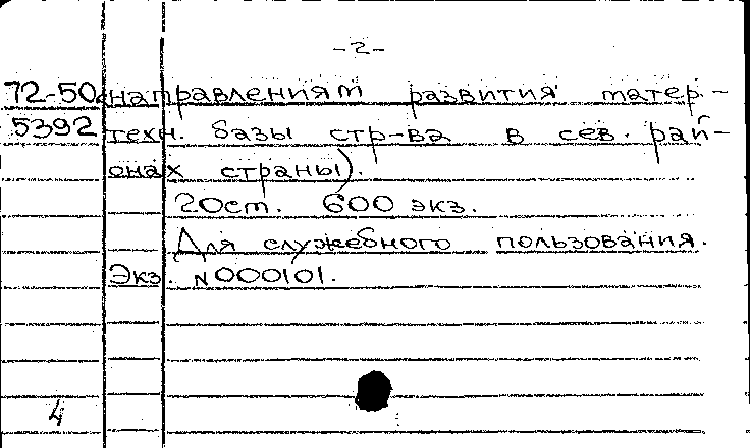 -2-
72-50c направлениям развития матер.-
5392 техн. базы стр-ва в сев. рай-
онах страны).
20ст. 600 экз.
Для служебного пользования.
Экз. N000101.
4